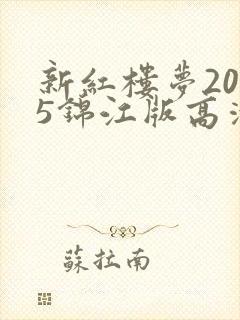 新紅樓夢20
5錦江版高清
蘇拉南